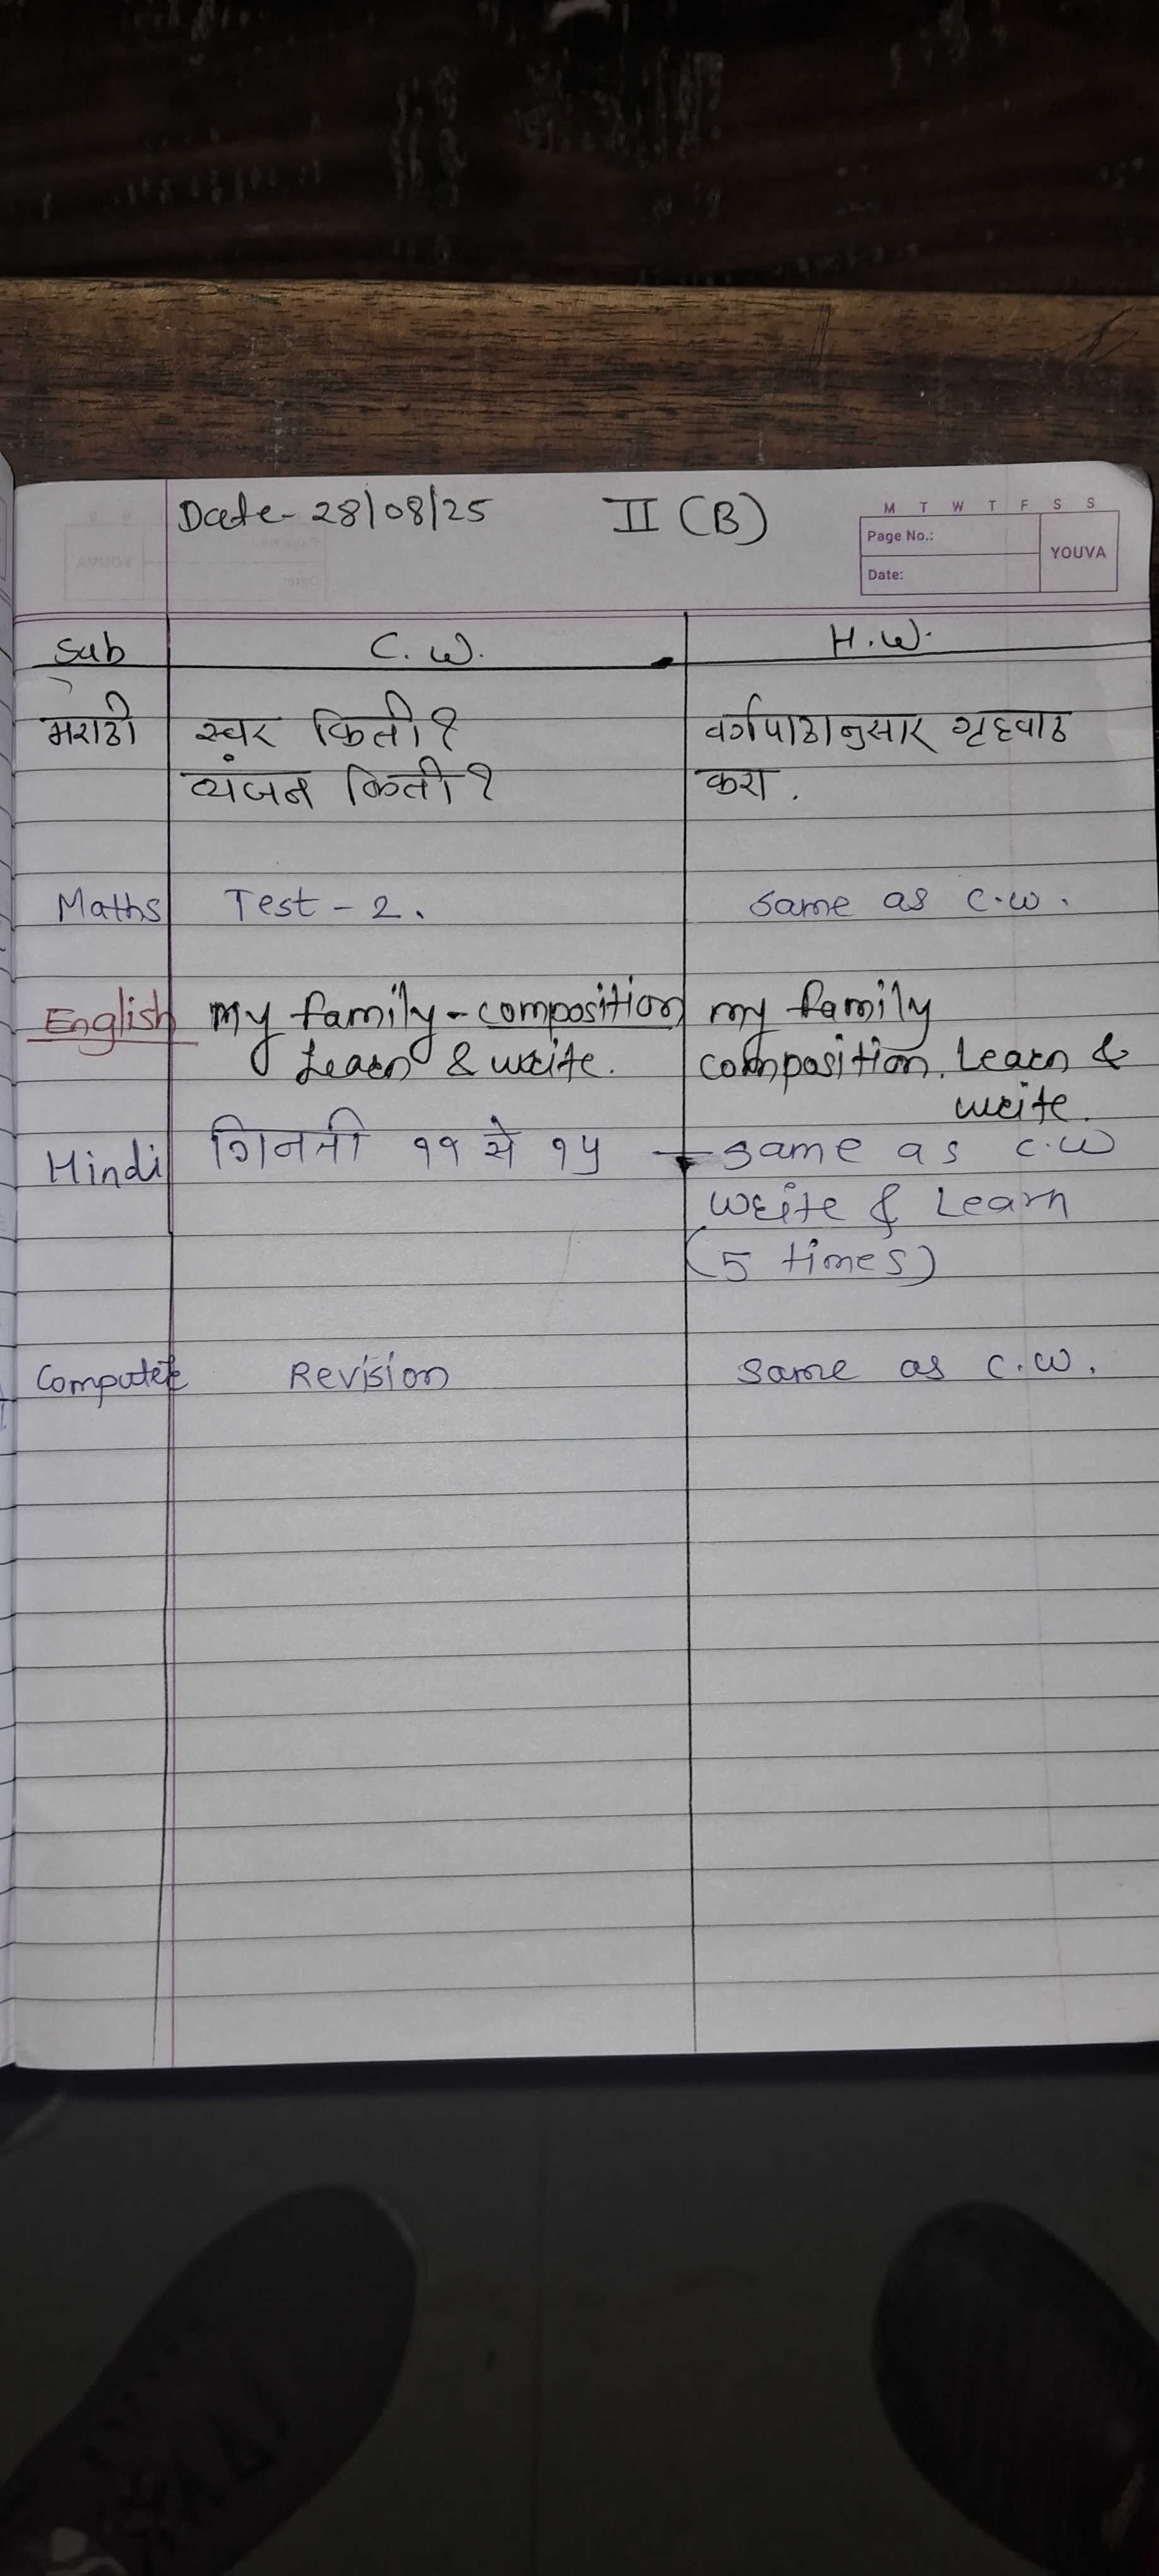 Date- 28/08/25 II (B)
M T W T F S S
Page No.:
YOUVA
Date:
Sub C.W. H.W.
मराठी स्वर किती? वर्गपाठानुसार गृहपाठ
व्यंजन किती? करा.
Maths Test - 2. same as c.w.
English my family - composition my family
Learn & write. composition. Learn &
write.
Hindi गिनती ११ से १५ same as c.w
write & Learn
(5 times)
Computer Revision same as c.w.